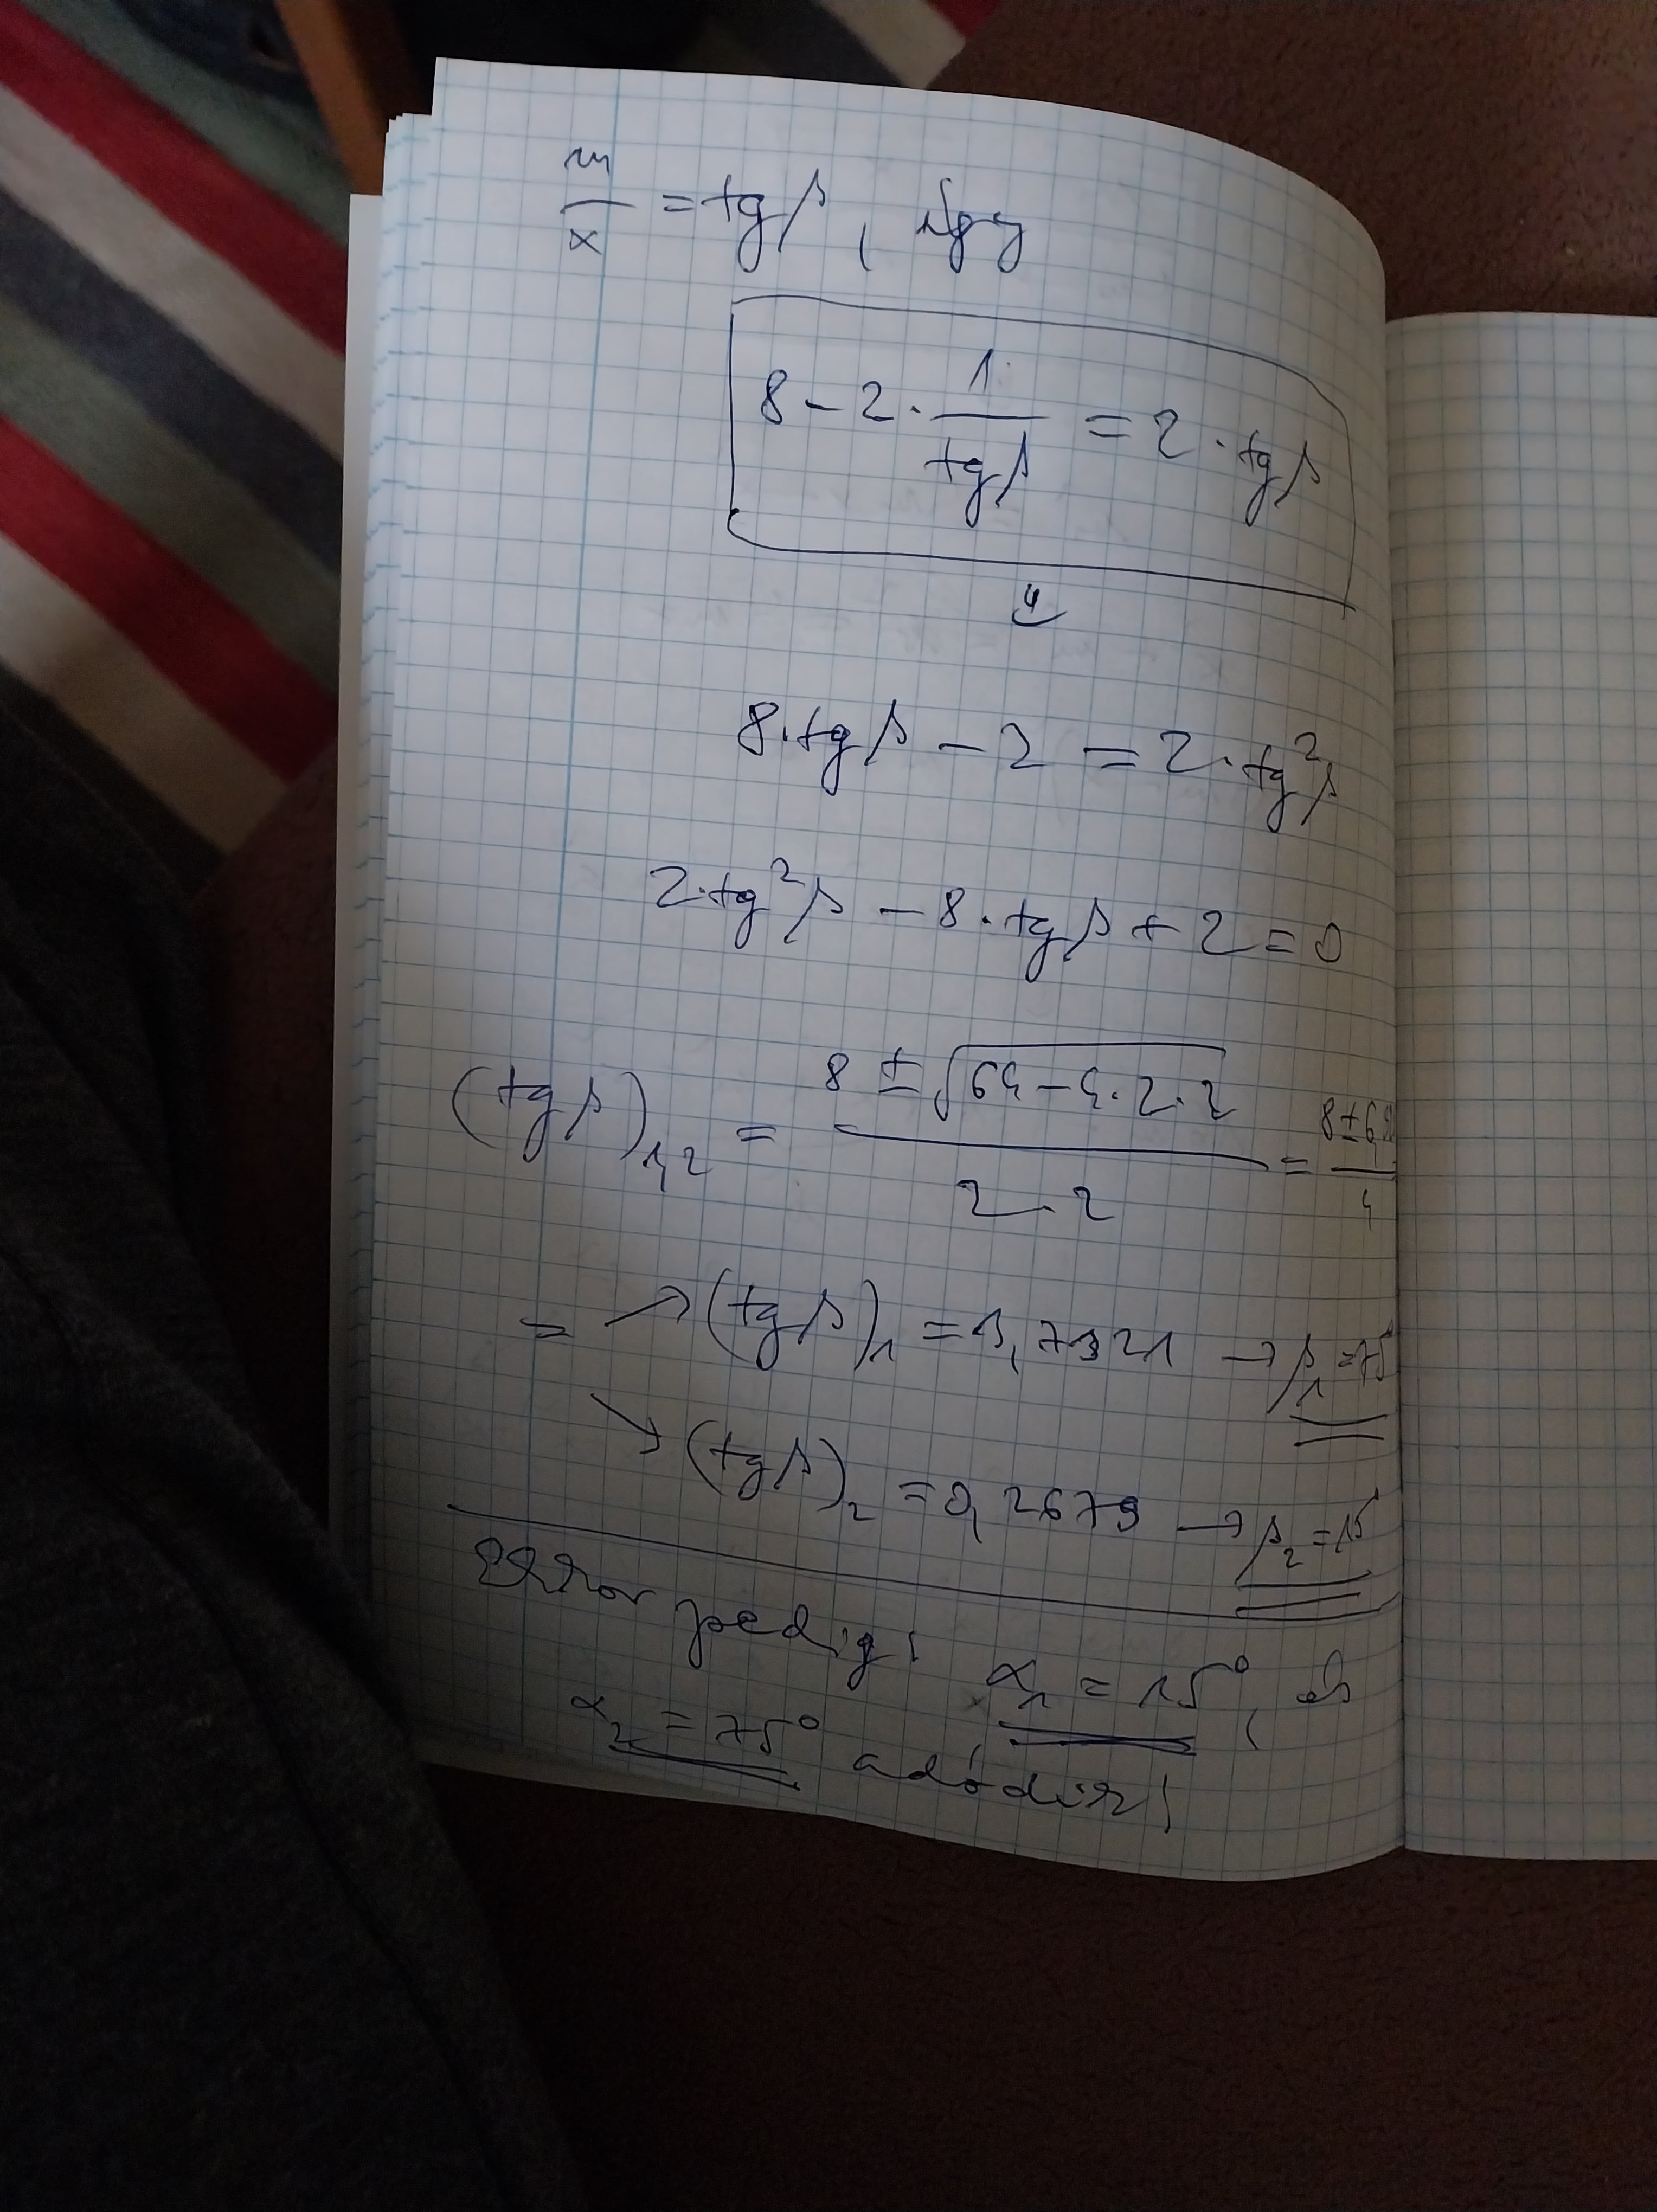 m/x = tgβ, így
8 - 2 · 1/tgβ = 2 · tgβ
8·tgβ - 2 = 2·tg²β
2·tg²β - 8·tgβ + 2 = 0
(tgβ)₁,₂ = (8 ± √(64 - 4·2·2))/(2·2) = (8 ± 6,92)/4
= → (tgβ)₁ = 3,7321 → β₁ = 75°
→ (tgβ)₂ = 0,2679 → β₂ = 15°
Ekkor pedig: α₁ = 15°, és
α₂ = 75° adódik!